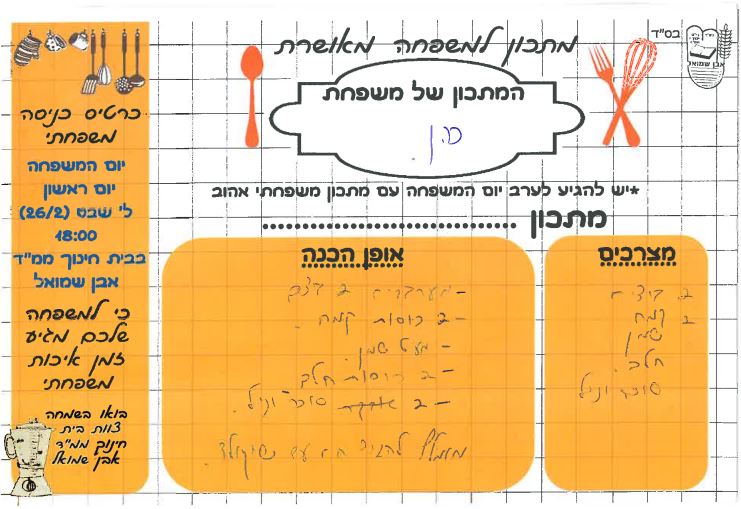 בס"ד
אבן שמואל
מתכון למשפחה מאושרת
המתכון של משפחת
*יש להגיע לערב יום המשפחה עם מתכון משפחתי אהוב
מתכון
מצרכים
2 ביצים
2 קמח
שמן
חלב
סוכר וניל
אופן הכנה
- מערבבים 2 ביצים
- 2 כוסות קמח.
- מעט שמן.
- 2 כוסות חלב
- 2 סוכר וניל.
מומלץ להגיש חם עם שוקולד.
כרטיס כניסה
משפחתי
יום המשפחה
יום ראשון
ל' שבט (26/2)
18:00
בבית חינוך ממ"ד
אבן שמואל
כי למשפחה
שלכם מגיע
זמן איכות
משפחתי
בואו בשמחה
צוות בית
חינוך ממ"ד
אבן שמואל